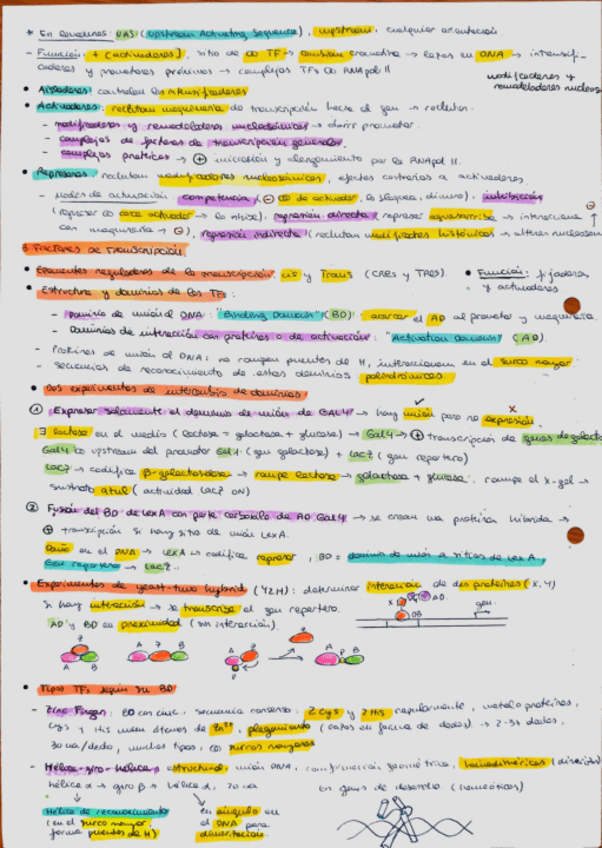 * En levaduras: UAS (Upstream Activating Sequence), upstream, cualquier orientación.
- Función: + (activadores), sitio de TF → cromatina → lejos en DNA → intensifi-
cadores y promotores próximos → complejos TFs RNApol II
modificadores y
remodeladores nucleos
• Aisladores: controlan los intensificadores
• Activadores: reclutan maquinaria de transcripción hacia el gen → reclutan:
- modificadores y remodeladores nucleosómicos → abrir promotor.
- complejos de factores de transcripción generales.
- complejos proteicos → + iniciación y alargamiento por la RNApol II.
• Represores: reclutan modificadores nucleosómicos, efectos contrarios a activadores.
- Modos de actuación: competencia (- de activador, lo bloquea, dímero), inhibición
(represor activador → lo inhibe), represión directa (represor → interacciona
con maquinaria → -), represión indirecta (reclutan modificadores histónicos → alteran nucleosom
3 Factores de transcripción
• Elementos reguladores de la transcripción: cis y Trans (CREs y TREs). • Función: fijadores
y activadores.
• Estructura y dominios de los TF:
- Dominio de unión al DNA: "Binding Domain" (BD) acercar el AD al promotor y maquinaria.
- Dominios de interacción con proteínas o de activación: "Activation Domain" (AD).
- Proteínas de unión al DNA: no rompen puentes de H, interaccionan en el surco mayor
- Secuencias de reconocimiento de estos dominios palindrómicas.
• Dos experimentos de intercambio de dominios
① Expresar solamente el dominio de unión de GAL4 → hay unión pero no expresión.
∃ lactosa en el medio (lactosa = galactosa + glucosa) → Gal4 → + transcripción de genes de galacto
Gal4 upstream del promotor Gal1 (gen galactosa) + lacZ (gen reportero)
lacZ → codifica β-galactosidasa → rompe lactosa → galactosa + glucosa. rompe el x-gal →
sustrato azul (actividad lacZ on)
② Fusión del BD de LexA con parte carboxilo de AD Gal4 → se crean una proteína híbrida →
+ transcripción si hay sitio de unión LexA.
Daño en el DNA → LexA codifica represor, BD = dominio de unión a sitios de Lex A.
Gen reportero → LacZ.
• Experimentos de yeast-two hybrid (Y2H): determinar interacción de dos proteínas (X, Y)
Si hay interacción → se transcribe el gen reportero.
AD y BD en proximidad (sin interacción).
X Y AD
BD
gen
A B
A B
A B
P
A P B
• Tipos TFs según su BD
- Zinc Finger: BD con cinc, secuencia consenso: 2 Cys y 2 His regularmente, metaloproteínas,
Cys y His unen átomos de Zn²⁺, plegamiento (lazos en forma de dedos) → 2-37 dedos,
30 aa/dedo, muchos tipos, surcos mayores
- Hélice-giro-hélice: estructural, unión DNA, conformación geométrica, homodiméricas (dímeros)
hélice α → giro β → hélice α, 20 aa
en genes de desarrollo (homeóticos)
Hélice de reconocimiento
(en el surco mayor,
forma puentes de H)
en ángulo en
el DNA para
dimerización.